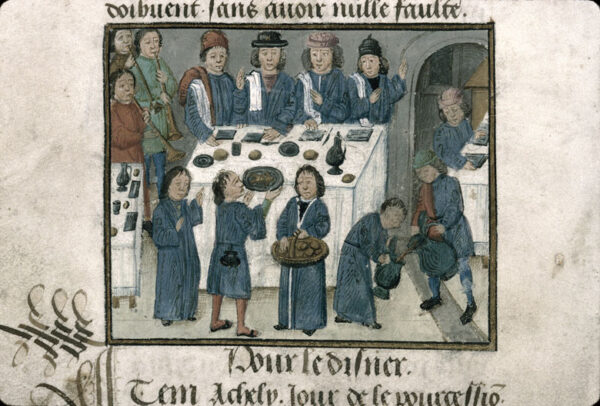 doibuent sans auoir nulle faulte.
Pour le disner.
Item Achely. Jour de le pourcessio